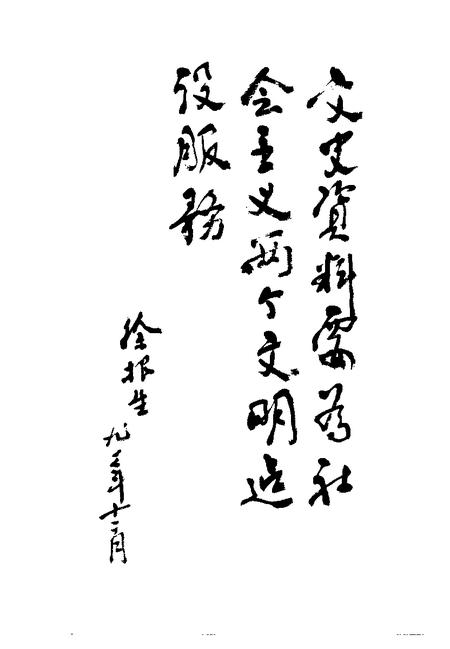 文史資料要為社
会主义两个文明建
设服務
徐根生
九二年十二月